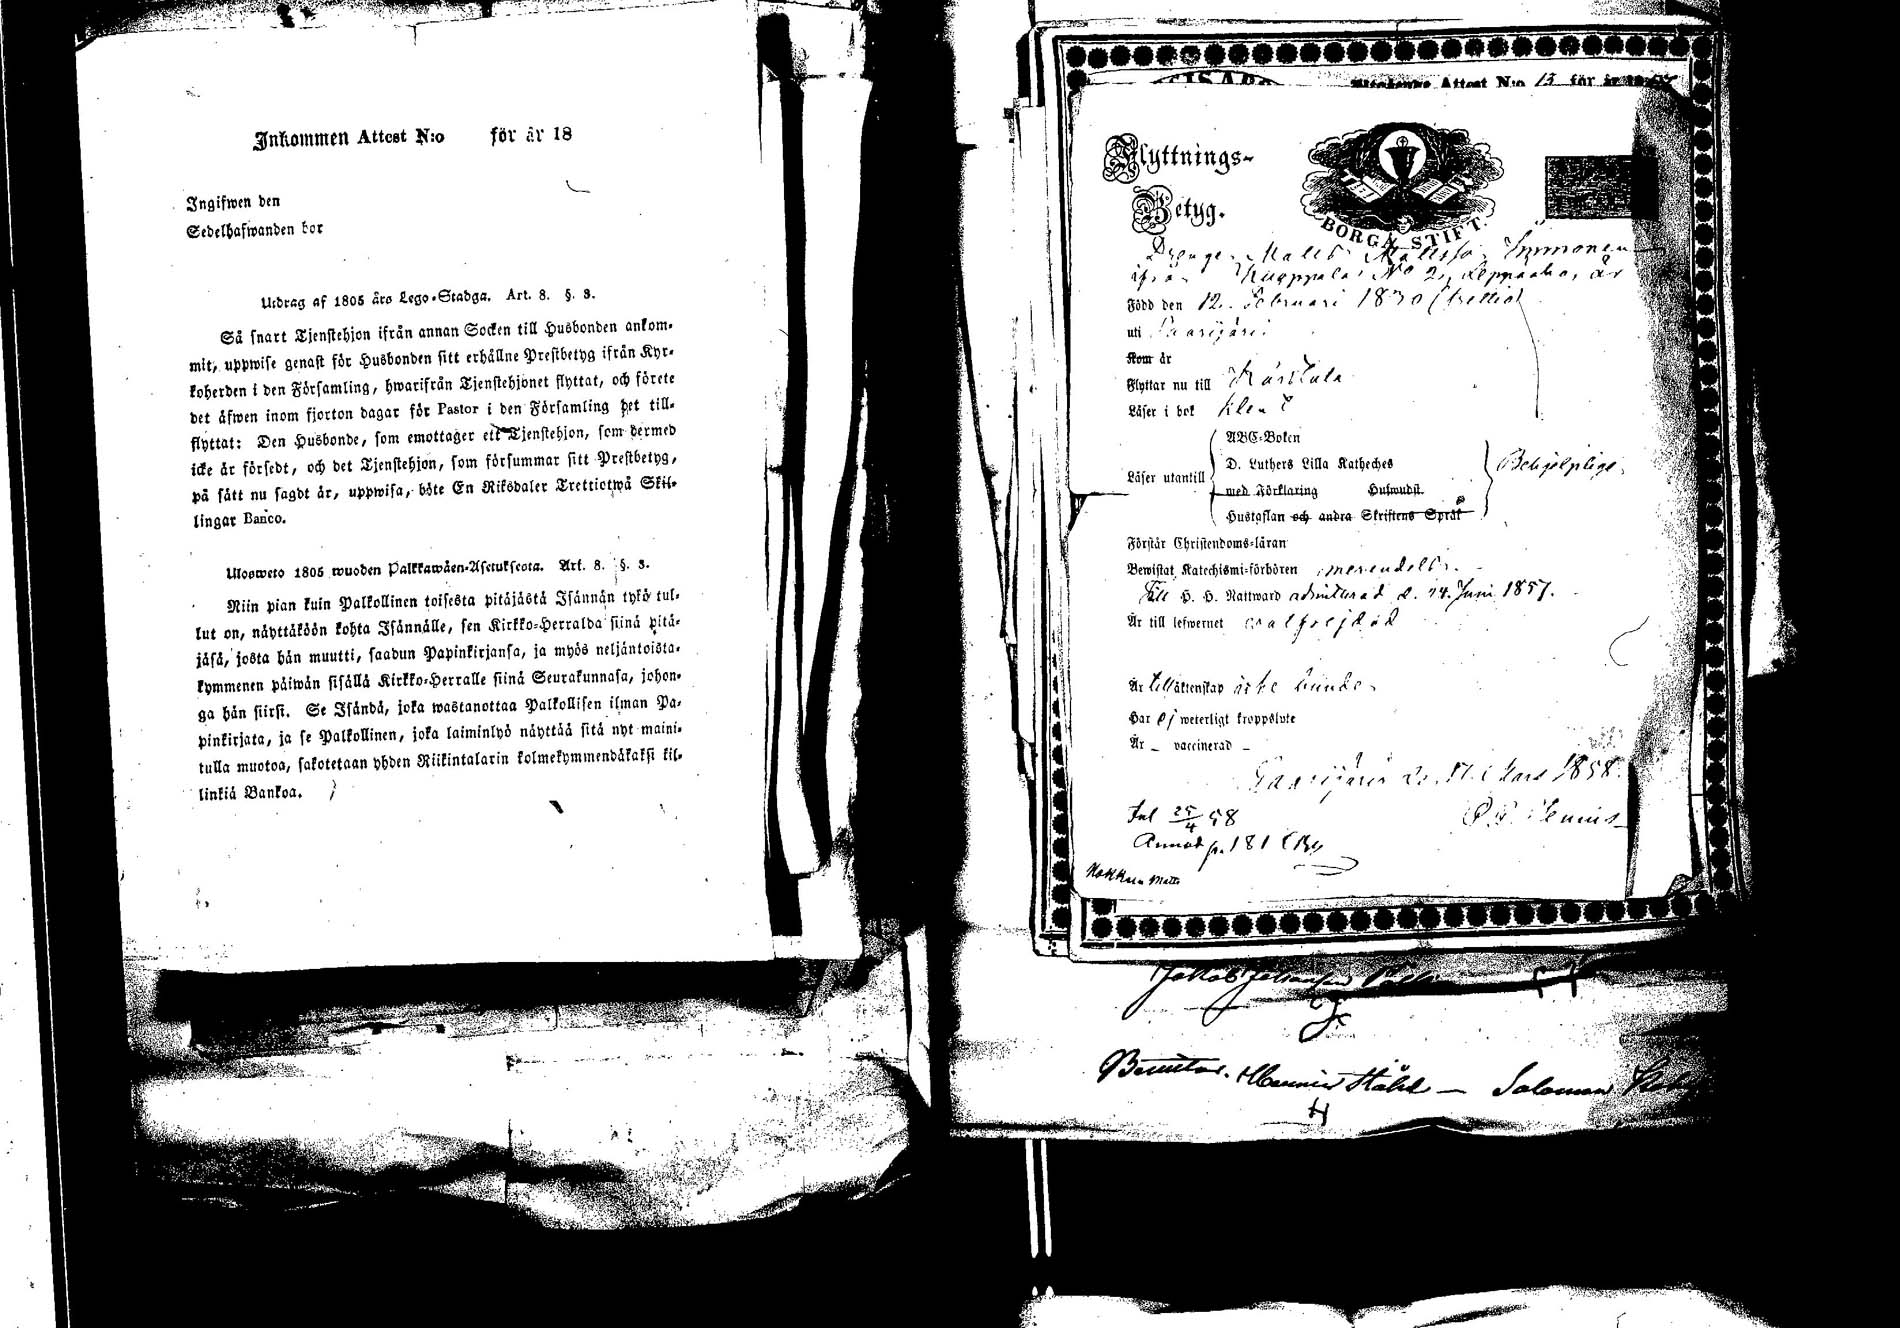 Inkommen Attest N:o för år 18
Ingifwen den
Sedelhafwanden bor
Utdrag af 1805 års Lego-Stadga. Art. 8. §. 3.
Så snart Tjenstehjon ifrån annan Socken till Husbonden ankom-
mit, uppwise genast för Husbonden sitt erhållne Prestbetyg ifrån Kyr-
koherden i den Församling, hwarifrån Tjenstehjonet flyttat, och förete
det äfwen inom fjorton dagar för Pastor i den Församling det till-
flyttat: Den Husbonde, som emottager ett Tjenstehjon, som dermed
icke är försedt, och det Tjenstehjon, som försummar sitt Prestbetyg,
på sätt nu sagdt är, uppwisa, böte En Riksdaler Trettiotwå Skil-
lingar Banco.
Ulosweto 1805 wuoden Palkkawäen-Asetuksesta. Art. 8. §. 3.
Niin pian kuin Palkollinen toisesta pitäjästä Isännän tykö tul-
lut on, näyttäköön kohta Isännälle, sen Kirkko-Herralda siinä pitä-
jäsä, josta hän muutti, saadun Papinkirjansa, ja myös neljäntoista-
kymmenen päiwän sisällä Kirkko-Herralle siinä Seurakunnasa, johon-
ga hän siirsi. Se Isändä, joka wastanottaa Palkollisen ilman Pa-
pinkirjata, ja se Palkollinen, joka laiminlyö näyttää sitä nyt maini-
tulla muotoa, sakotetaan yhden Riikintalarin kolmekymmendäkaksi kil-
linkiä Bankoa.
Attest N:o 13 för år
Flyttnings-
Betyg.
BORGÅ STIFT.
Drengen Matts Mattsson Immonen
ifrån Kuoppala No 2, Leppäaho, är
Född den 12 Februari 1830 (trettio)
uti Saarijärvi
Kom år
Flyttar nu till Karstula
Läser i bok
Läser utantill
ABC-Boken
D. Luthers Lilla Katheches
med Förklaring Huswudst.
Hustaflan och andra Skriftens Språk
Behjelpligt
Förstår Christendoms-läran
Bewistat Katechismi-förhören
Till H. H. Nattward admitterad d. 14 Juni 1857.
Är till lefwernet wälfrejdad
Är till äktenskap icke bunden
Har ej weterligt kroppslyte
Är – vaccinerad –
Saarijärvi d. 17 Mars 1858.
Inl 25/4 58
Annot p. 181
Matts
Jakob Johansson
Salomon